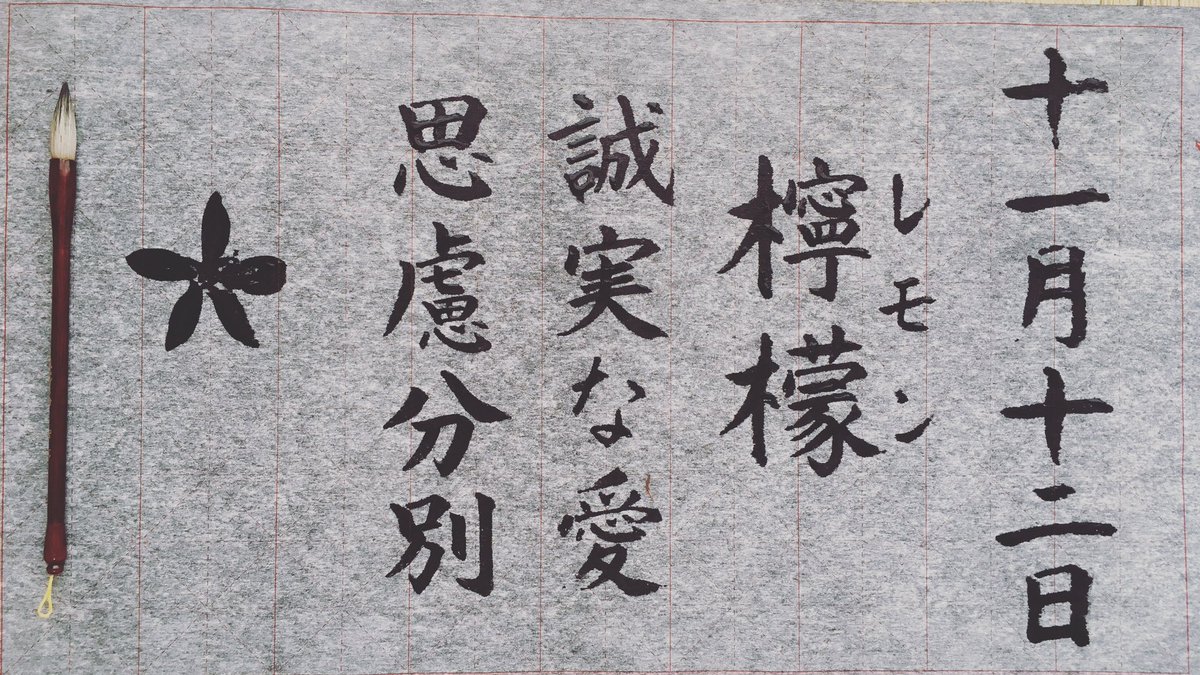 十一月十二日
レモン
檸檬
誠実な愛
思慮分別